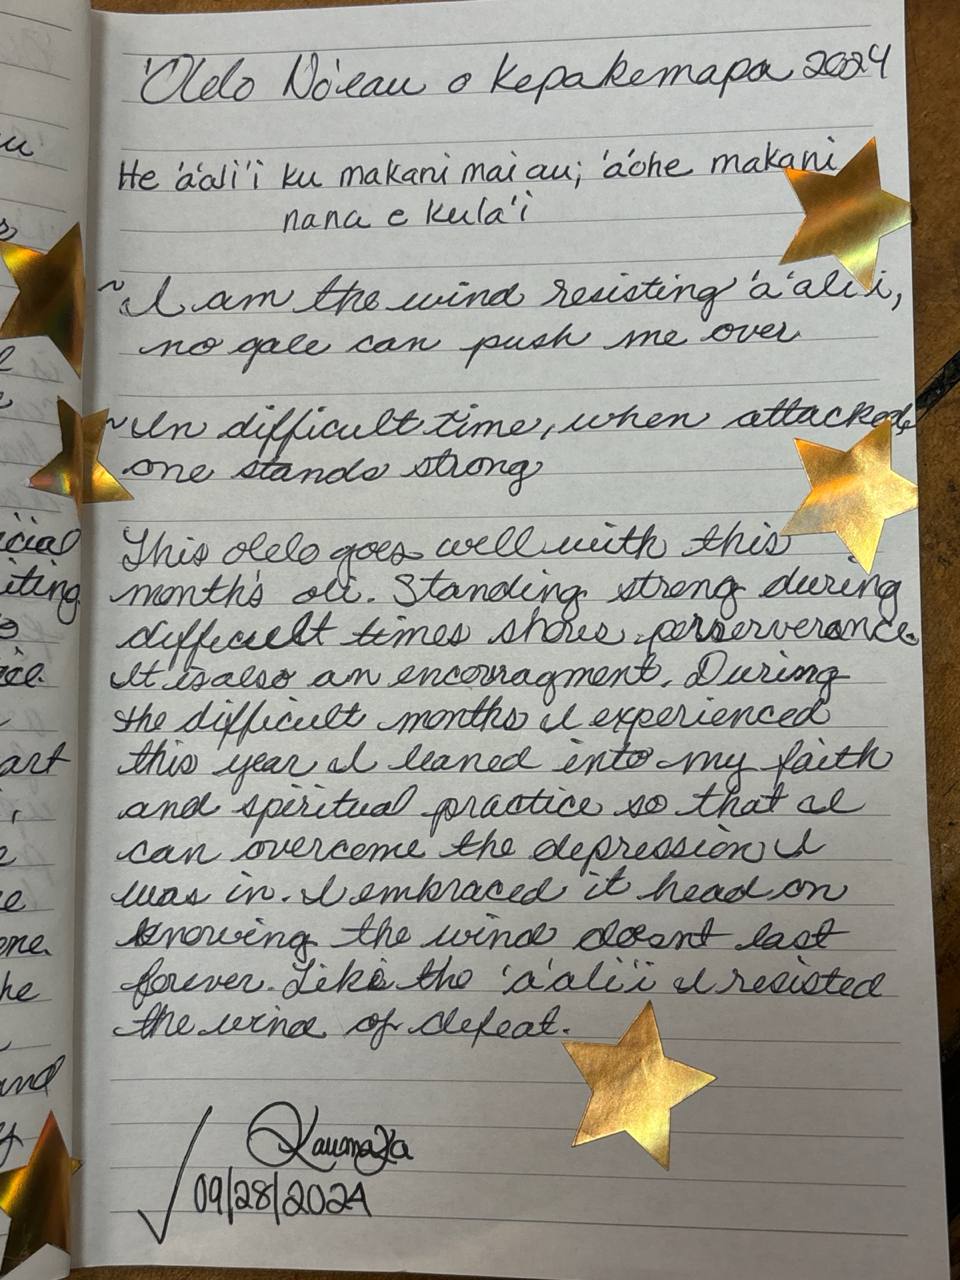 'Olelo No'eau o Kepakemapa 2024
He 'a'ali'i ku makani mai au; 'a'ohe makani
nana e kula'i
~ I am the wind resisting 'a'ali'i,
no gale can push me over
~ In difficult time, when attacked,
one stands strong
This olelo goes well with this
month's oli. Standing strong during
difficult times shows perserverance.
It is also an encouragment. During
the difficult months I experienced
this year I leaned into my faith
and spiritual practice so that I
can overcome the depression I
was in. I embraced it head on
knowing the wind doesnt last
forever. Like the 'a'ali'i I resisted
the wind of defeat.
Kaumaka
09/28/2024
icial
iting
art
one
he
and